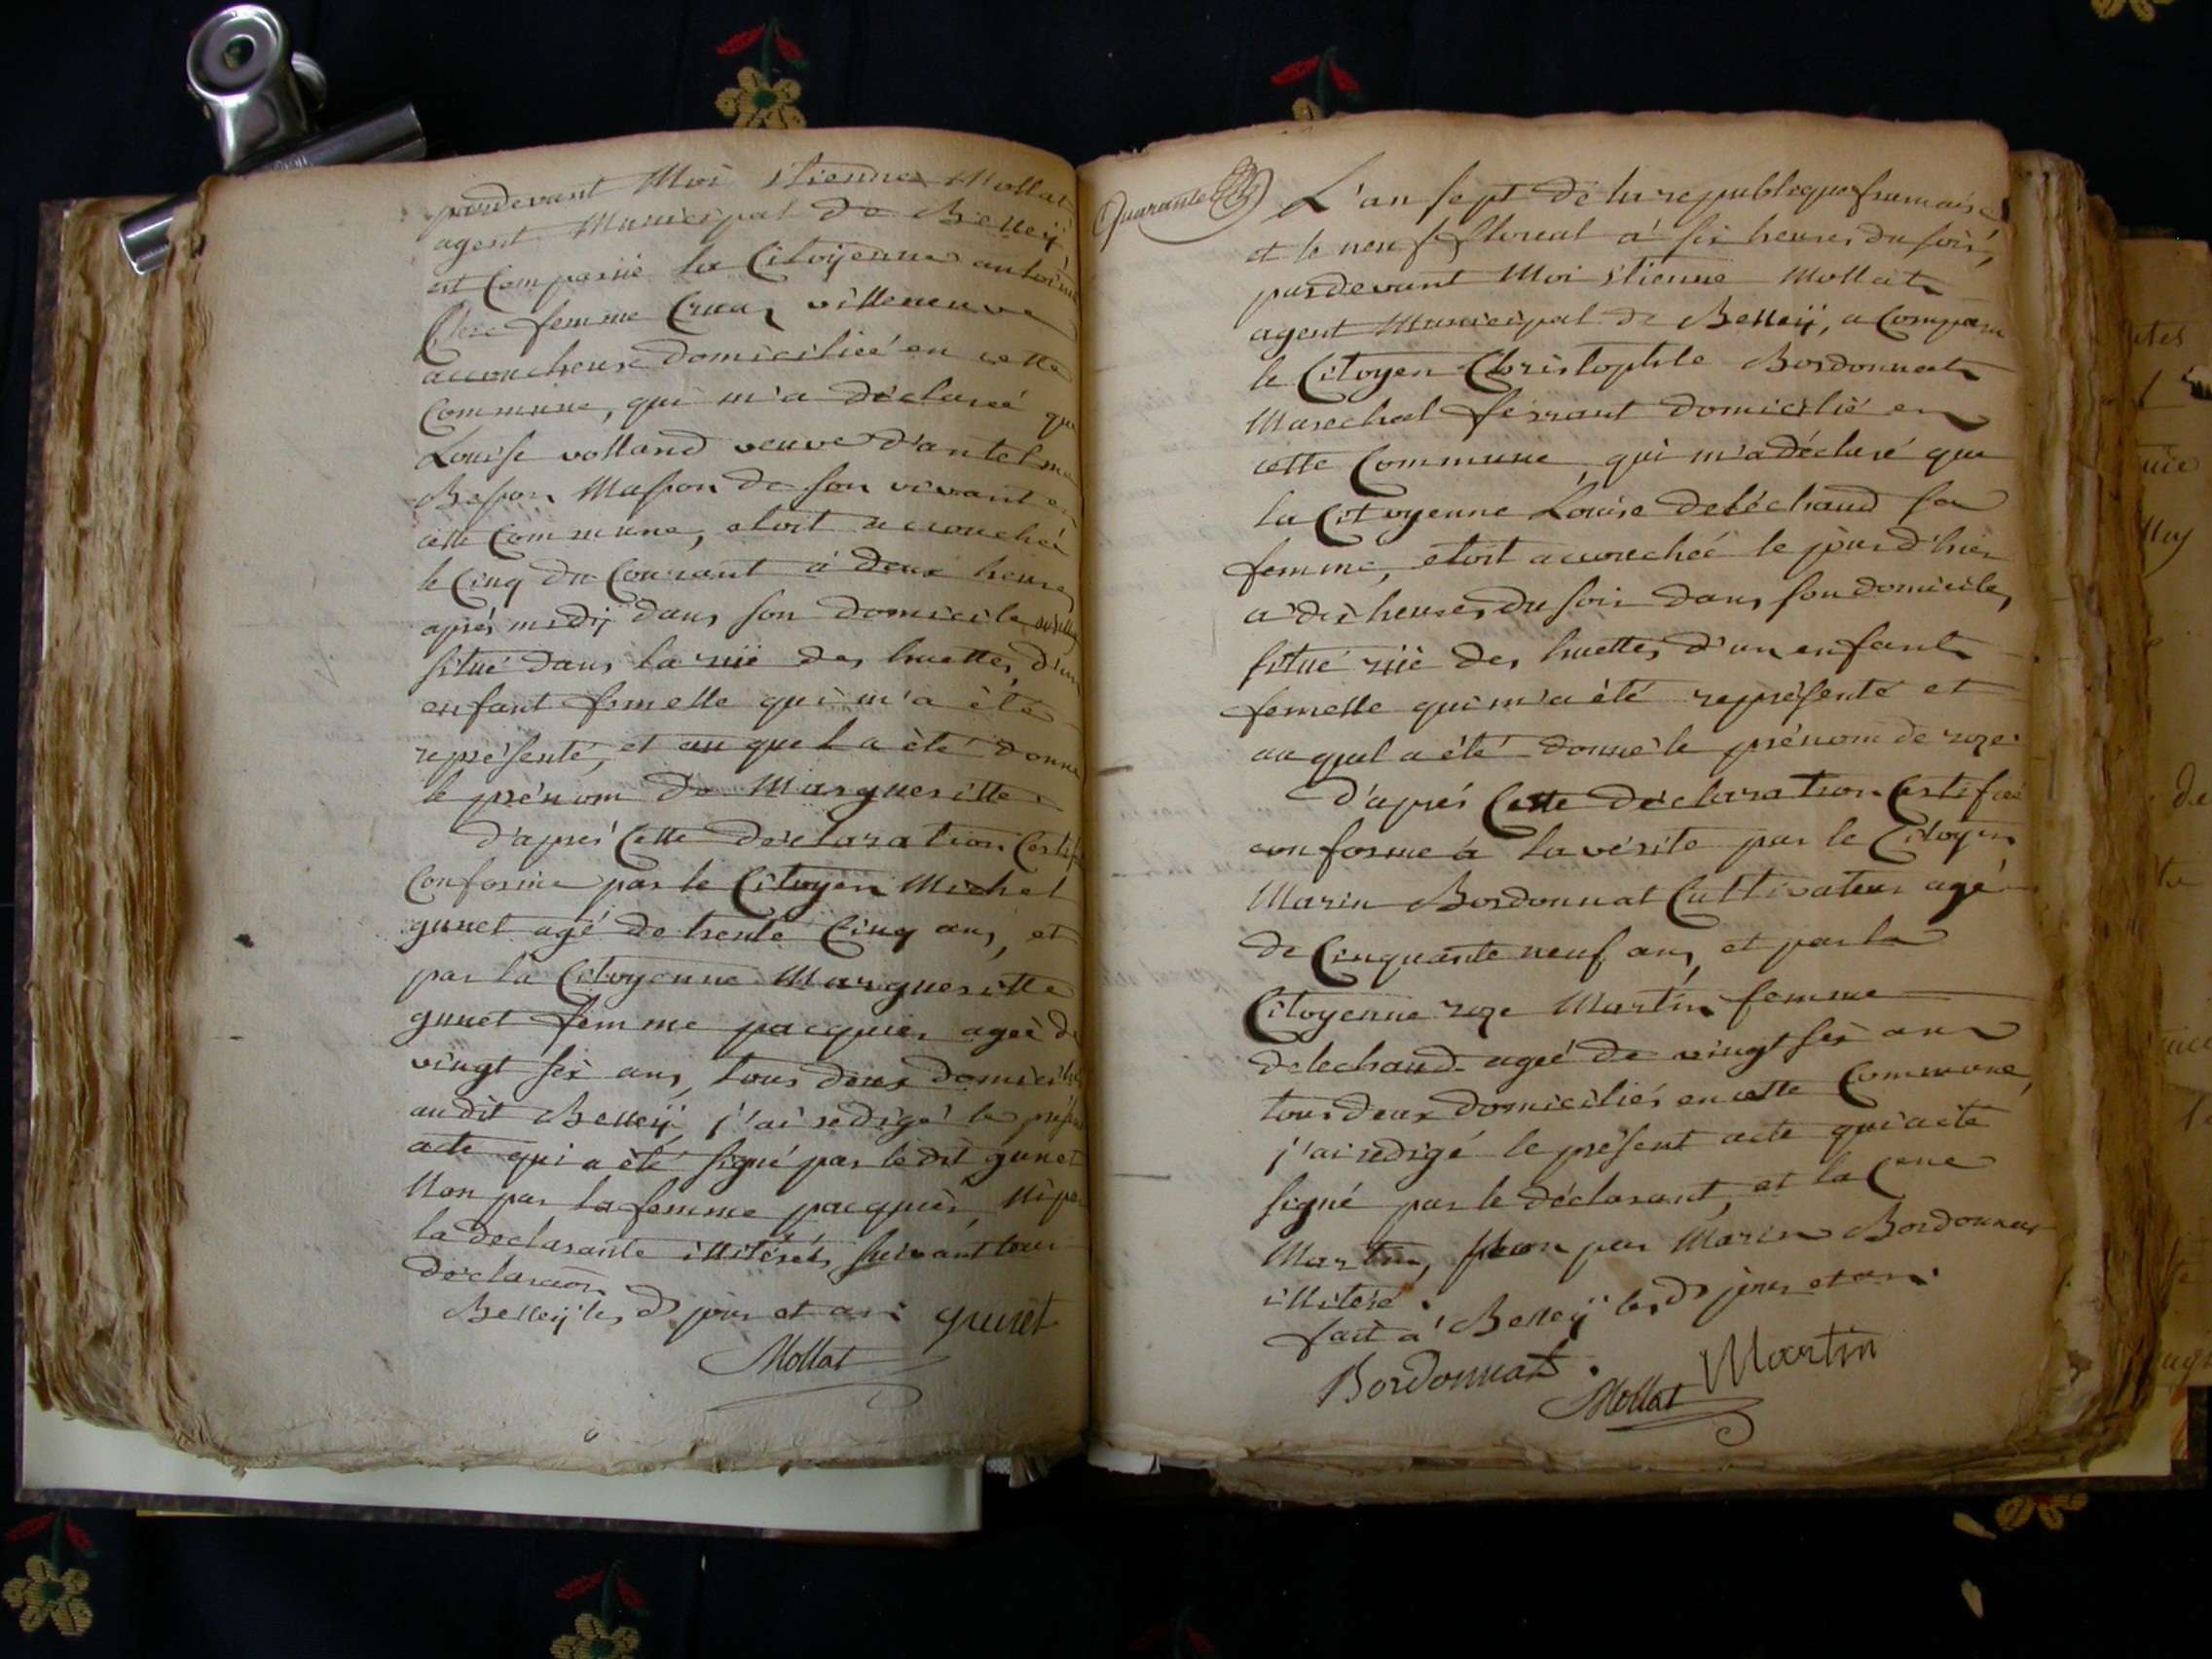 pardevant Moi Etienne Mollat
agent Municipal de Belleÿ
est Comparüe la Citoÿenne antoine
femme villeneuve
accoucheuse domiciliée en cette
Commune, qui m'a déclaré que
Louise volland veuve d'antelme
Besson Masson de son vivant en
cette Commune, etoit accouchée
le Cinq du Courant à deux heures
après midÿ dans son domicile
situé dans la rüe des huettes, d'un
enfant femelle qui m'a été
représenté, et auquel a été donné
le prénom de Marguerittte
d'après Cette déclaration Certif
Conforme par le Citoyen Michel
gunet agé de trente Cinq ans, et
par la Citoyenne Margueritte
gunet femme pacquier agée de
vingt six ans, tous deux domiciliés
audit Belleÿ j'ai redigé le présent
acte qui a été signé par ledit gunet
Non par la femme pacquier, Ni par
la declarante illiterés, suivant leur
déclaraõn
Belleÿ les d jour et an. gunet
Mollat
Quarante
L'an sept de la republique francaise
et le neuf floreal à six heures du soir,
pardevant Moi Etienne Mollat
agent Municipal de Belleÿ, a Comparu
le Citoyen Christophle Bordonnat
Marechal ferrant domicilié en
cette Commune qui m'a déclaré que
la Citoyenne Louise deléchaud sa
femme, etoit accouchée le jour d'hier
a dix heures du soir dans son domicile,
situé rüe des huettes d'un enfant
femelle qui m'a été représenté et
auquel a été donné le prénom de roze.
d'après Cette déclaration Certifiée
conforme à la vérité par le Citoyen
Marin Bordonnat Cultivateur agé
de Cinquante neuf ans, et par la
Citoyenne roze Martin femme
delechaud agée de vingt six ans
tous deux domiciliés en cette Commune,
j'ai redigé le présent acte qui a été
signé par le déclarant, et la
Martin, non par Marin Bordonnat
illiteré.
fait à Belleÿ les d jour et an.
Bordonnat. Martin
Mollat